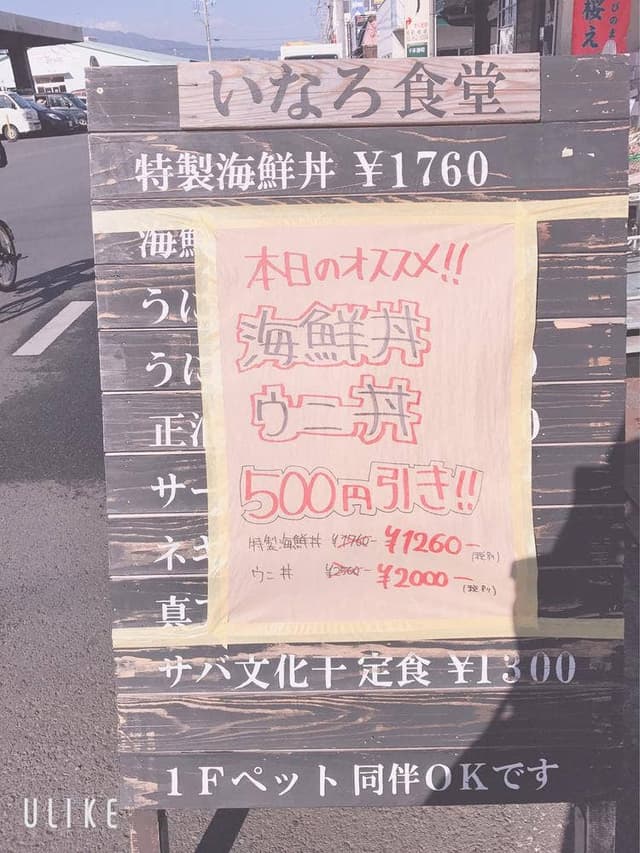 いなろ食堂
特製海鮮丼 ¥1760
海鮮
本日のオススメ!!
うに
海鮮丼
うに
ウニ丼
正
サー
500円引き!!
ネギ
特製海鮮丼 ¥1760- ¥1260-
(税別)
ウニ丼 ¥2500- ¥2000-
(税別)
真
サバ文化干定食 ¥1300
1Fペット同伴OKです
桜え
ULIKE